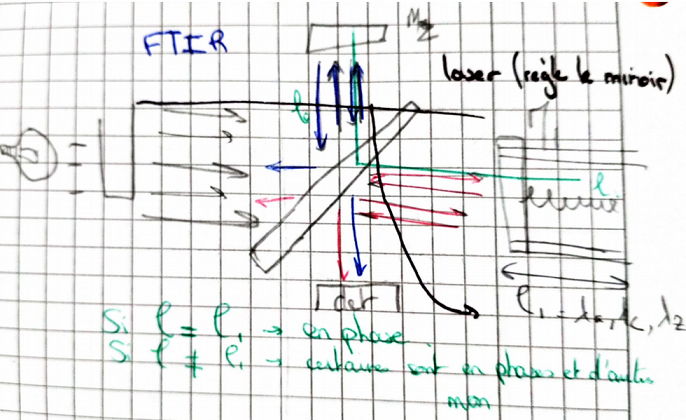 FTIR
M2
laser (règle le miroir)
l
l
det
l1 = λ
Si l = l1 → en phase.
Si l ≠ l1 → certaines sont en phases et d'autres
non